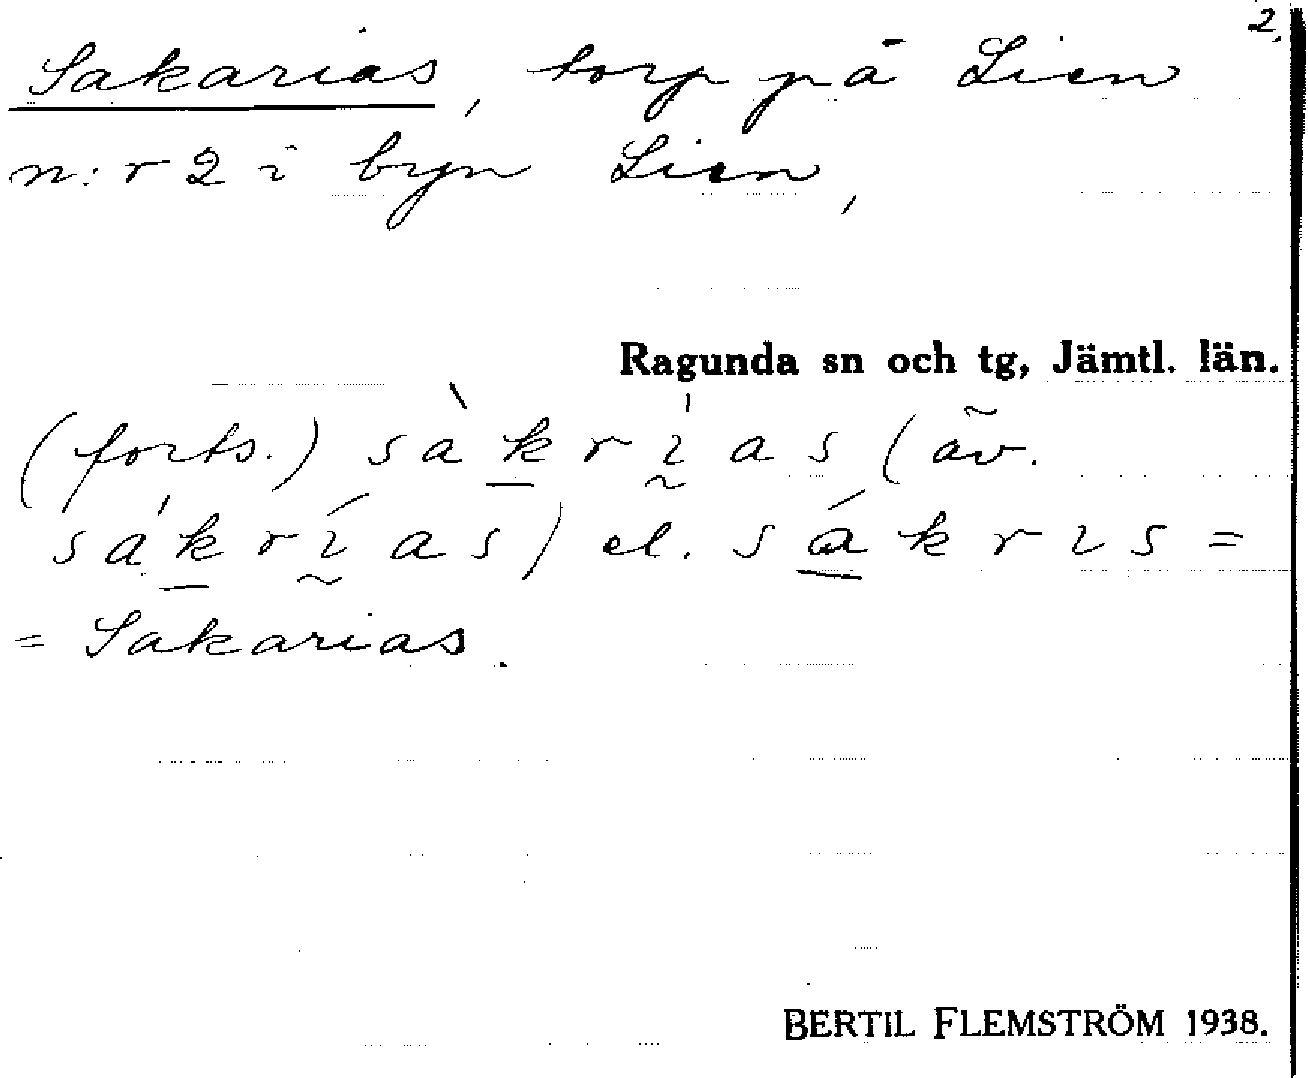 2.
Sakarias, torp på Lien
n:r 2 i byn Lien,
Ragunda sn och tg, Jämtl. län.
(forts.) sàk̲rı̰́as (äv.
sák̲rı̰́as) el. sá̲krıs =
= Sakarias.
BERTIL FLEMSTRÖM 1938.